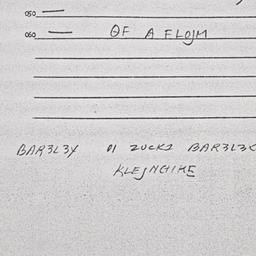 050 —
060 — OF A FLOJM
BAR3L3Y 01 ZUCK2 BAR3L3
KLEJNGIHE